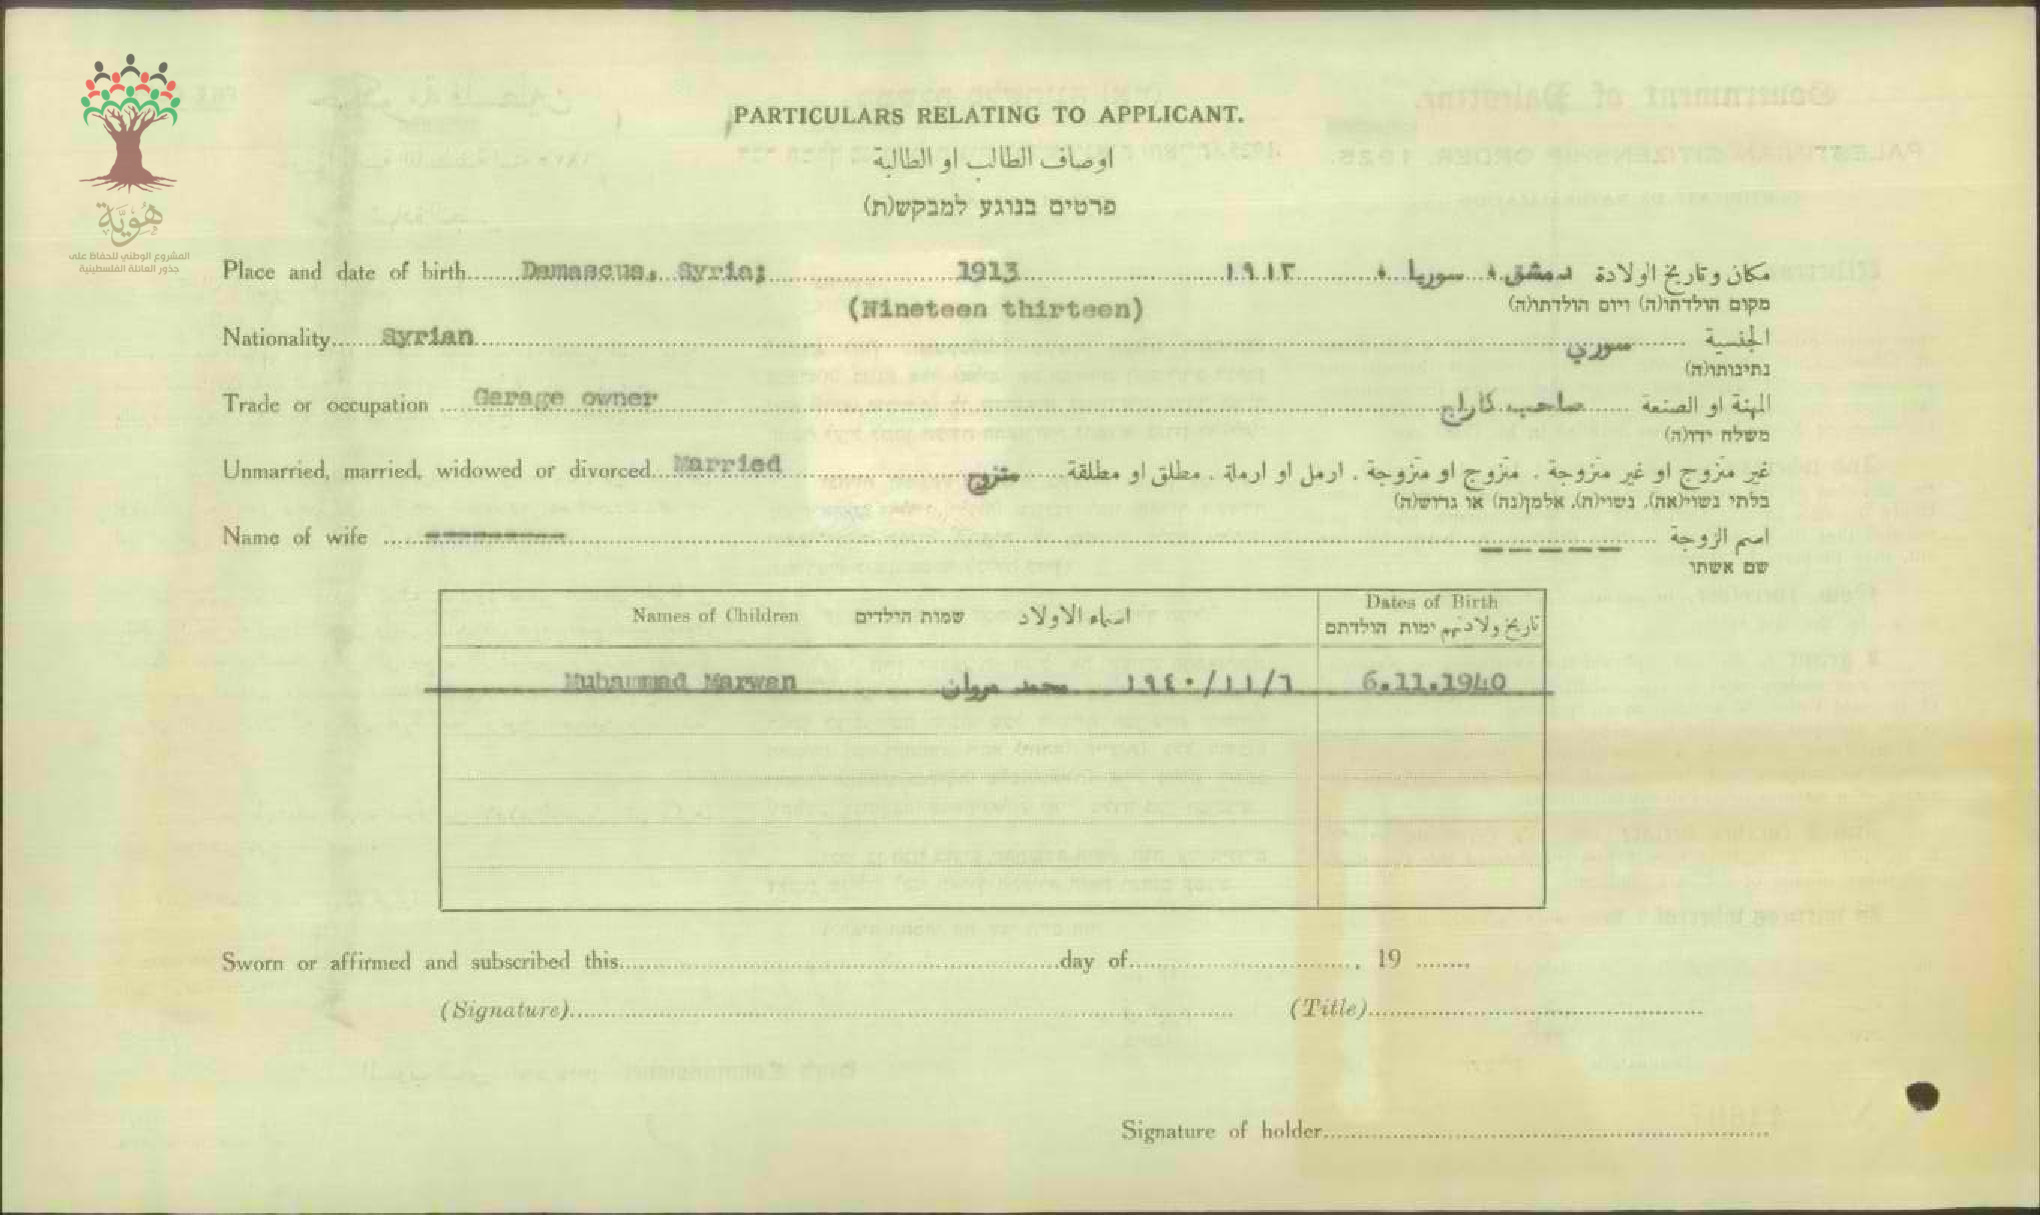 هُوِيَّة
المشروع الوطني للحفاظ على
جذور العائلة الفلسطينية
PARTICULARS RELATING TO APPLICANT.
اوصاف الطالب او الطالبة
פרטים בנוגע למבקש(ת)
Place and date of birth Damascus, Syria; 1913 ١٩١٣ دمشق ، سوريا ، مكان وتاريخ الولادة
(Nineteen thirteen) מקום הולדתו(ה) ויום הולדתו(ה)
Nationality Syrian سوري الجنسية
נתינותו(ה)
Trade or occupation Garage owner صاحب كاراج المهنة او الصنعة
משלח ידו(ה)
Unmarried, married, widowed or divorced Married متزوج غير متزوج او غير متزوجة . متزوج او متزوجة . ارمل او ارملة . مطلق او مطلقة
בלתי נשוי(אה), נשוי(ה), אלמן(נה) או גרוש(ה)
Name of wife ---------- ----- اسم الزوجة
שם אשתו
Names of Children שמות הילדים اسماء الاولاد
Dates of Birth
تاريخ ولادتهم ימות הולדתם
Muhammad Marwan محمد مروان ١٩٤٠/١١/٦ 6.11.1940
Sworn or affirmed and subscribed this day of , 19
(Signature) (Title)
Signature of holder